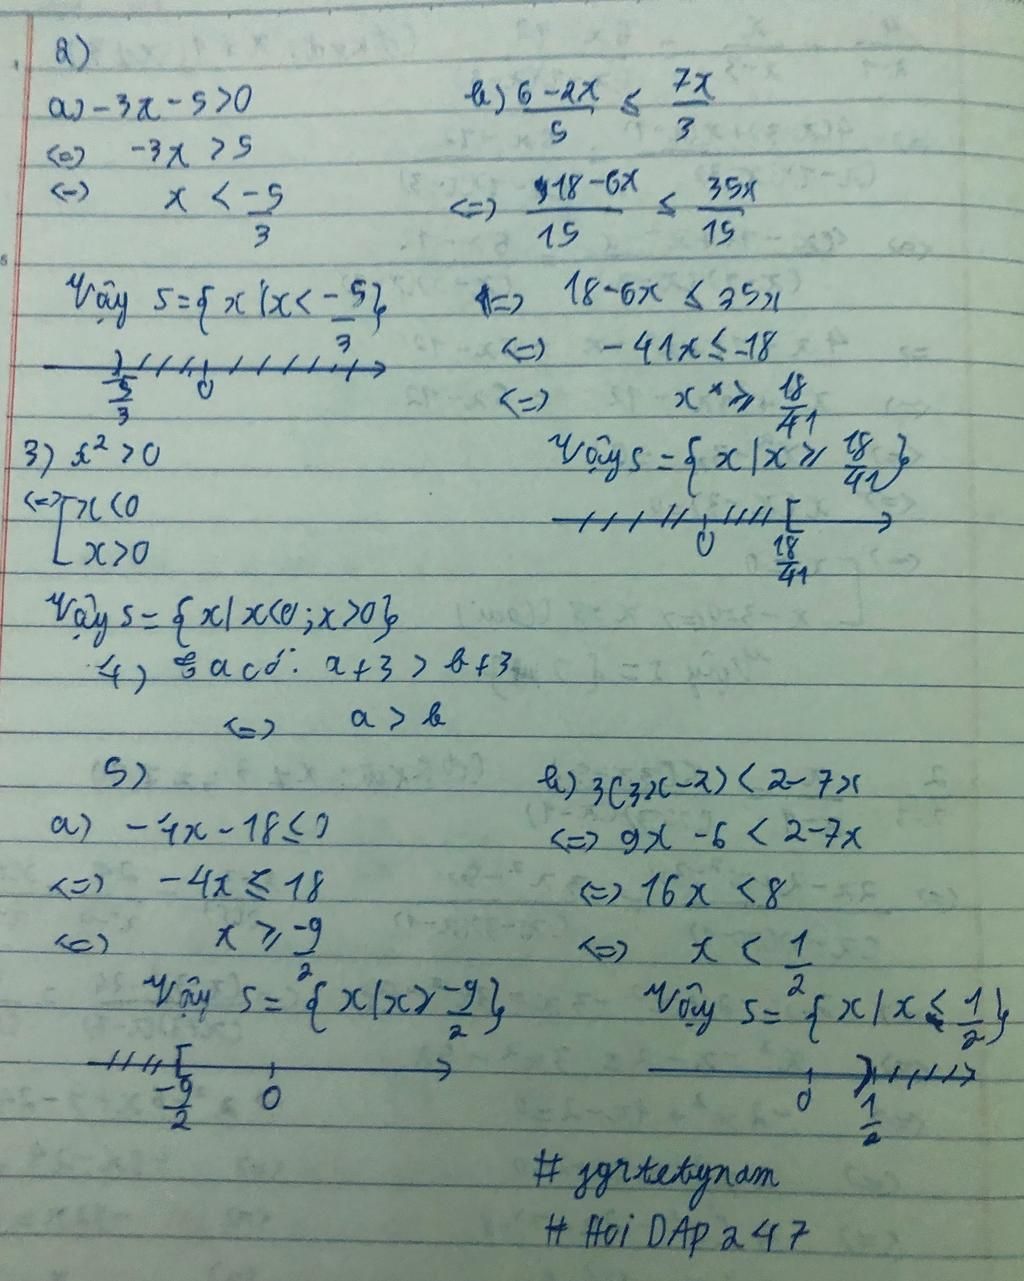 2)
a) -3x - 5 > 0
<=> -3x > 5
<=> x < -5/3
Vậy S = { x | x < -5/3 }
-5/3 0
b) 6 - 2x / 5 ≤ 7x / 3
<=> 18 - 6x / 15 ≤ 35x / 15
<=> 18 - 6x ≤ 35x
<=> -41x ≤ -18
<=> x ≥ 18/41
Vậy S = { x | x ≥ 18/41 }
0 18/41
3) x² > 0
<=> [ x < 0
x > 0
Vậy S = { x | x < 0 ; x > 0 }
4) Ta có: a + 3 > b + 3
<=> a > b
5)
a) -4x - 18 ≤ 0
<=> -4x ≤ 18
<=> x ≥ -9/2
Vậy S = { x | x ≥ -9/2 }
-9/2 0
b) 3(3x - 2) < 2 - 7x
<=> 9x - 6 < 2 - 7x
<=> 16x < 8
<=> x < 1/2
Vậy S = { x | x ≤ 1/2 }
0 1/2
# Hoi DAP 247